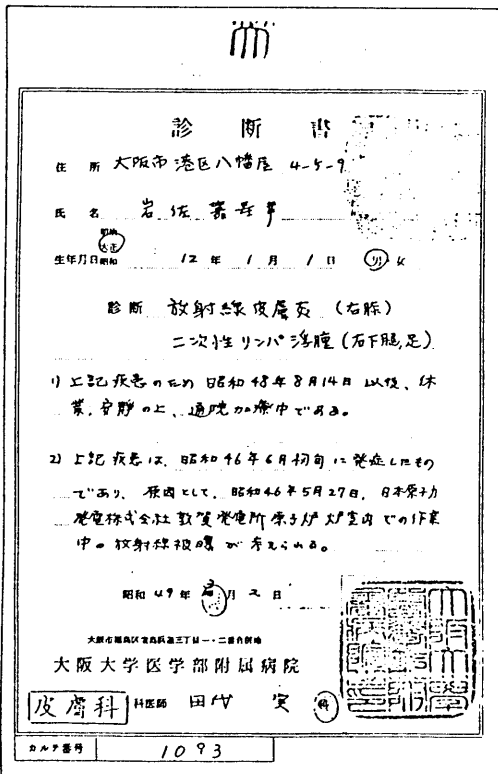 診断書
住所 大阪市港区八幡屋 4-5-9
氏名 岩佐嘉寿幸
生年月日 明治 大正 昭和 12年 1月 1日 男・女
診断 放射線皮膚炎 (右膝)
二次性リンパ浮腫 (右下腿,足)
1) 上記疾患のため昭和48年8月14日以後、休
業、安静の上、通院加療中である。
2) 上記疾患は、昭和46年6月初旬に発症したもの
であり、原因として、昭和46年5月27日、日本原子力
発電株式会社敦賀発電所原子炉炉室内での作業
中の放射線被曝が考えられる。
昭和49年 月2日
大阪市福島区堂島浜通三丁目一・二番合併地
大阪大学医学部附属病院
皮膚科 科医師 田代 実
カルテ番号 1093